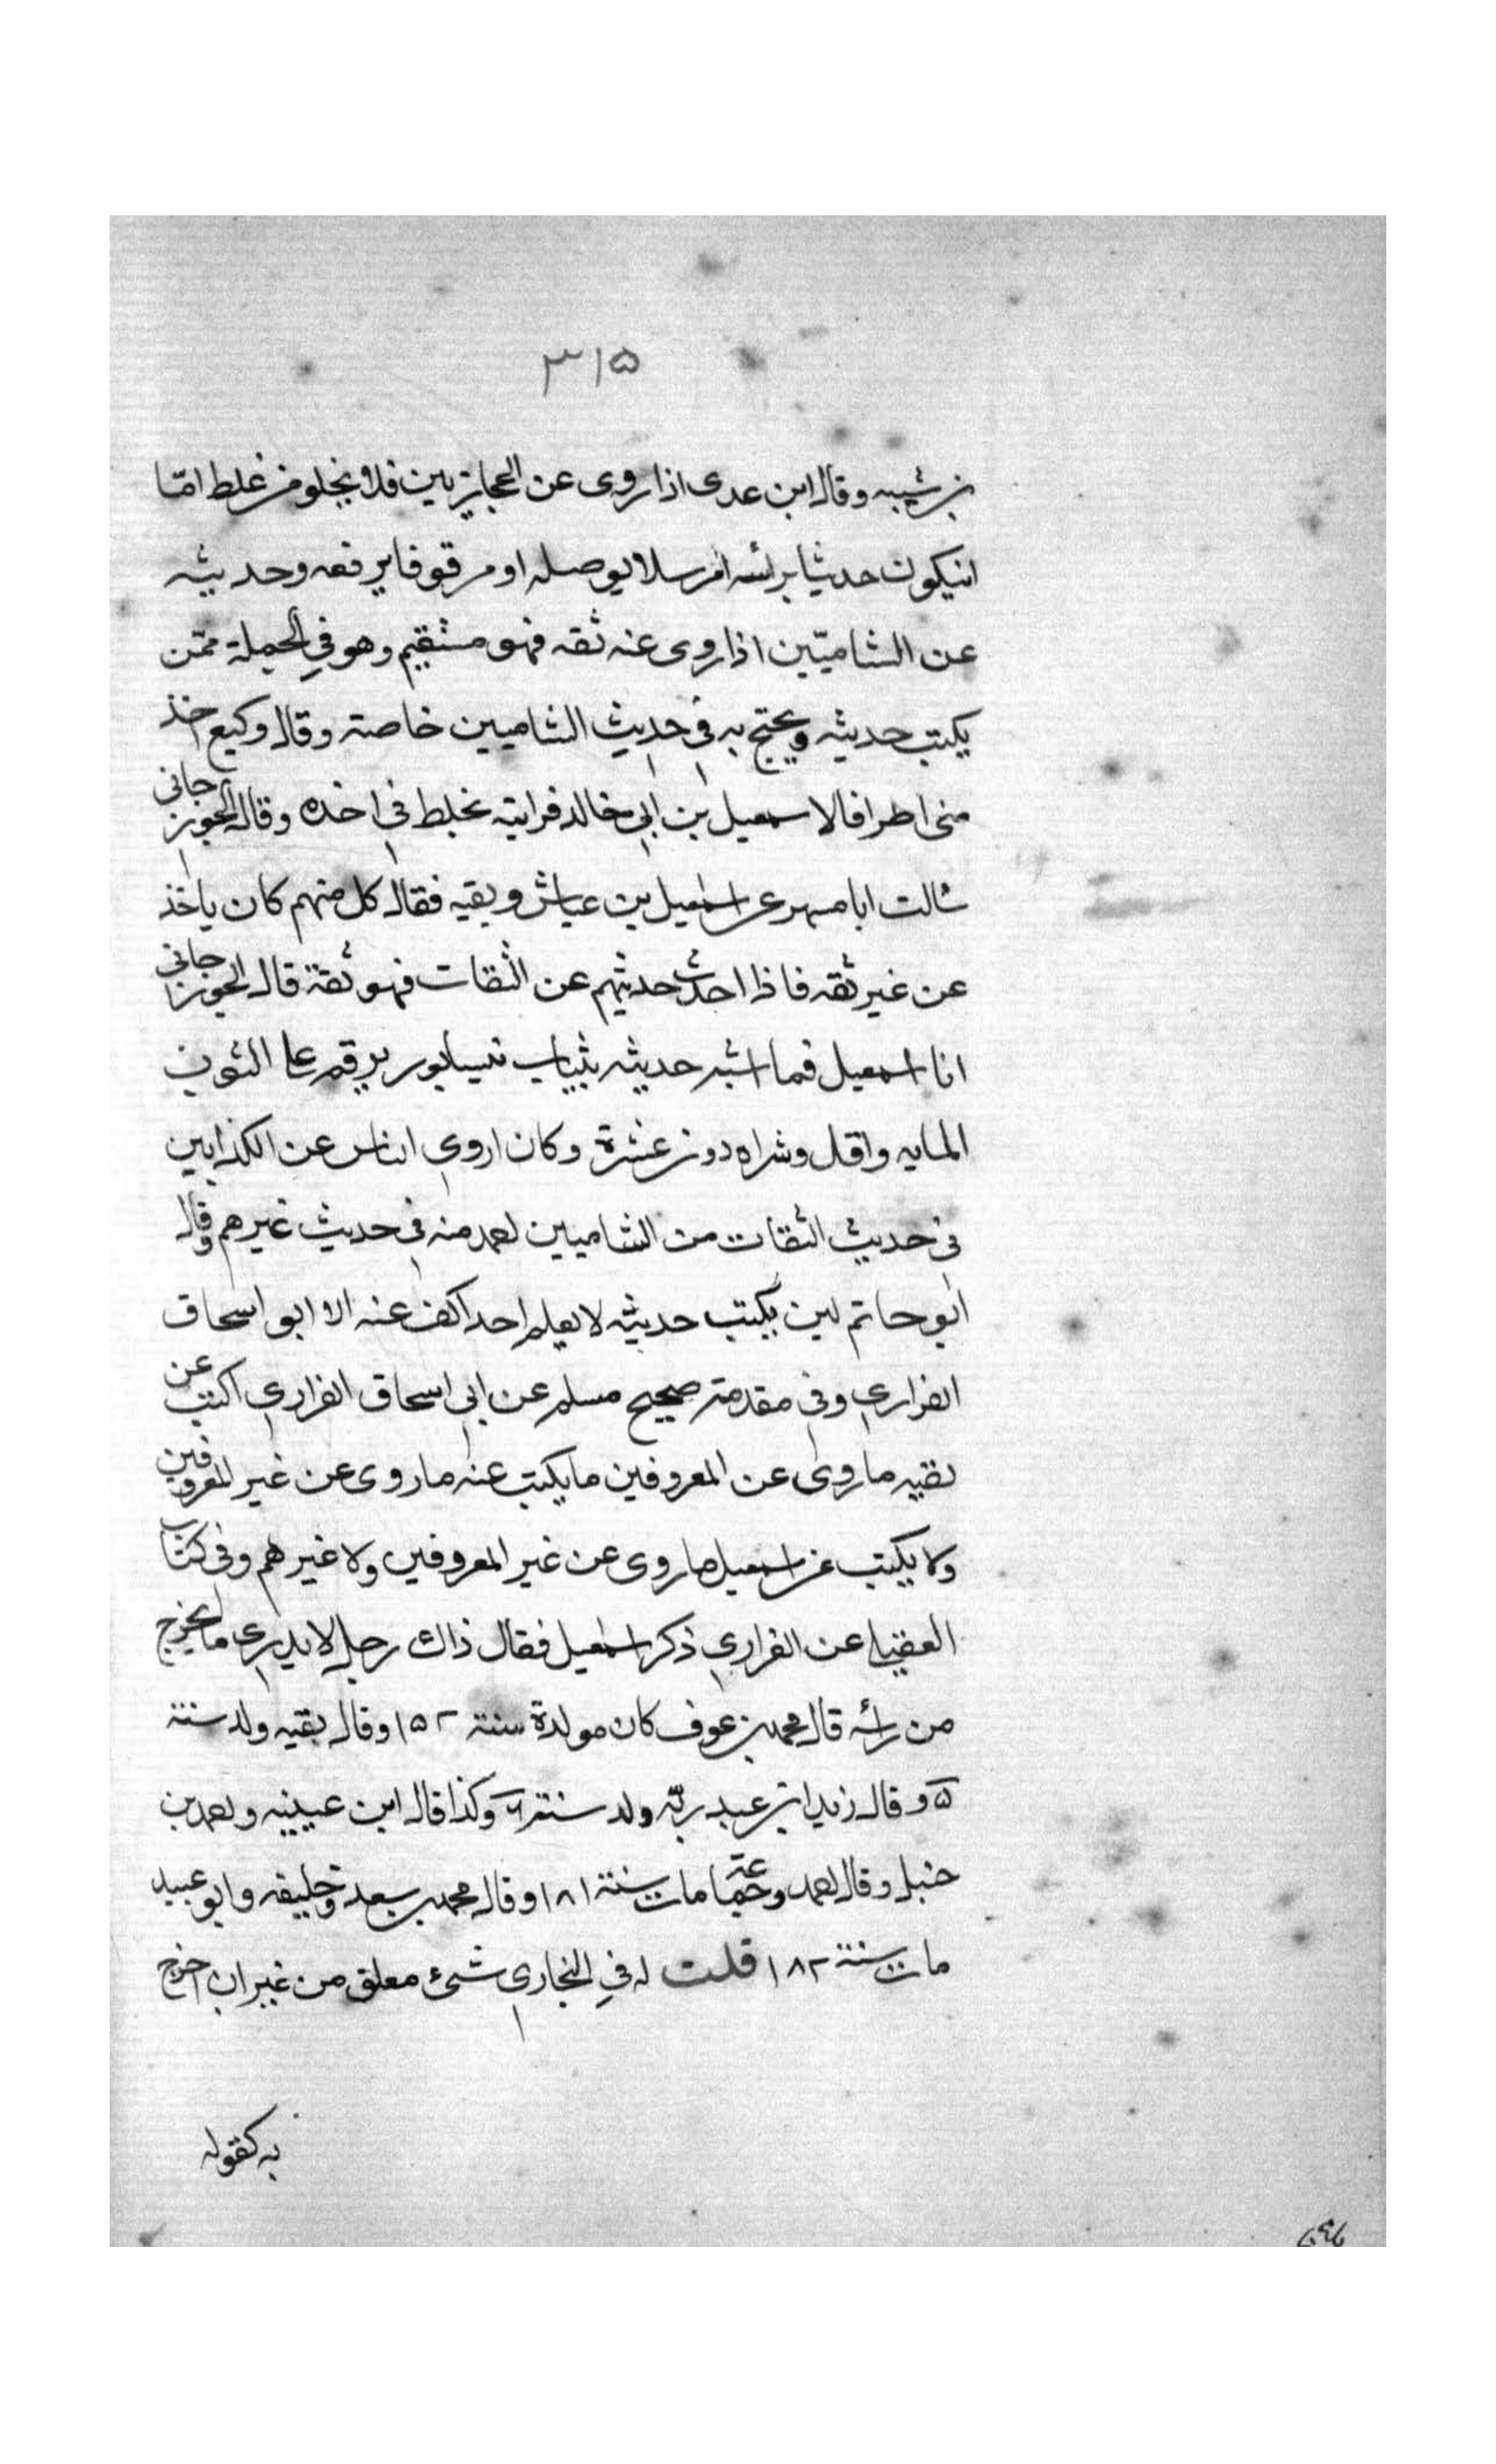 ٣١٥
بن شيبه وقال ابن عدى اذا روى عن الحجازيين فلا يخلو من غلط امّا
انيكون حديثا براسه امرسلا يوصله او مرقوفا يرفعه وحديثه
عن الشاميّين اذا روى عنه ثقه فهو مستقيم وهو في الجملة ممّن
يكتب حديثه ويحتج به فى حديث الشاميين خاصة وقال وكيع اخذ
منى اطرافا لاسمعيل بن ابى خالد فرايته يخلط فى اخذه وقال الجوزجانى
سالت ابا مسهر عن اسمعيل بن عياش وبقيه فقال كل منهم كان ياخذ
عن غير ثقه فاذا اخذت حديثهم عن الثقات فهو ثقة قال الجوزجانى
انا اسمعيل فما اشبه حديثه بثياب نيسابور يرقم على الثوب
المايه واقل وشراه دون عشرة وكان اروى الناس عن الكذابين
فى حديث الثقات من الشاميين احمد منه فى حديث غيرهم وقال
ابو حاتم لين يكتب حديثه لا يعلم احدا كف عنه الا ابو اسحاق
الفزارى وفى مقدمة صحيح مسلم عن ابى اسحاق الفزارى اكتب عن
بقيه ما روى عن المعروفين ما يكتب عنه ما روى عن غير المعروفين
ولا يكتب عن اسمعيل ما روى عن غير المعروفين ولا غيرهم وفى كتاب
العقيلى عن الفزارى ذكر اسمعيل فقال ذاك رجل لا يدرى ما يخرج
من راسه قال محمد بن عوف كان مولدة سنة ١٥٢ وقال بقيه ولد سنة
٥ وقال زيد ابن عبد ربّه ولد سنة ٦ وكذا قال ابن عيينه واحمد بن
حنبل وقال احمد وجماعة مات سنة ١٨١ وقال محمد بن سعد وخليفه وابو عبيد
مات سنة ١٨٢ قلت له في البخارى شىء معلق من غير ان اخرج
به كقوله